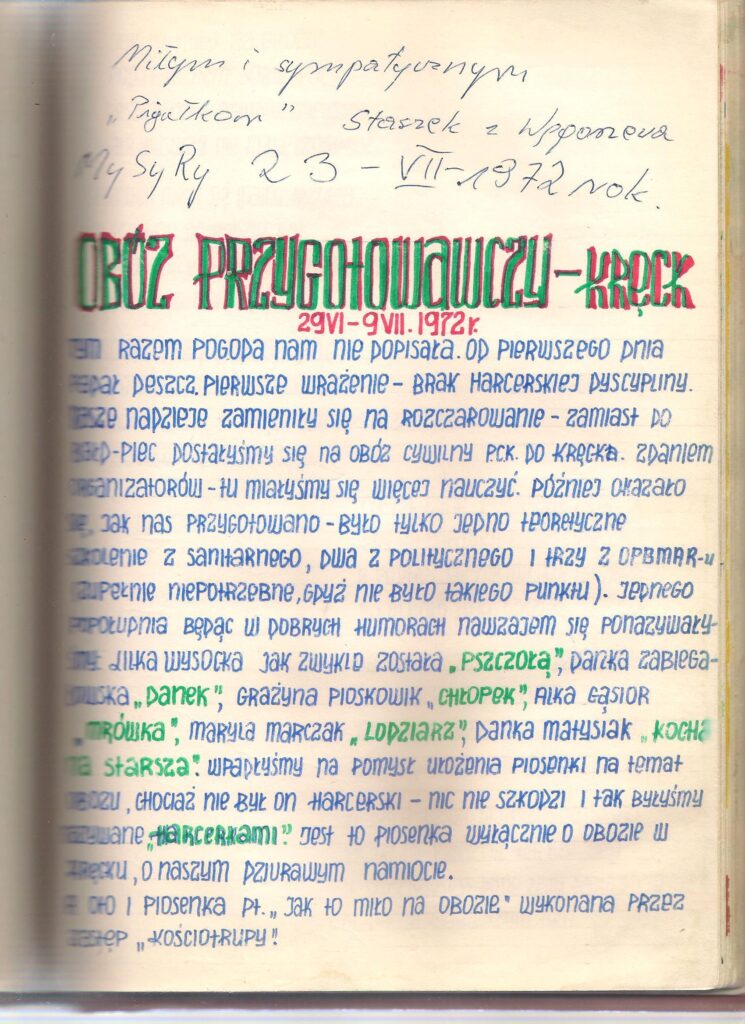 Miłym i sympatycznym
„Pigułkom” Staszek z Węgorzewa
MySyRy 23-VII-1972 rok.
OBÓZ PRZYGOTOWAWCZY – KRĘCK
29 VI – 9 VII. 1972 r.
TYM RAZEM POGODA NAM NIE DOPISAŁA. OD PIERWSZEGO DNIA
PADAŁ DESZCZ. PIERWSZE WRAŻENIE – BRAK HARCERSKIEJ DYSCYPLINY.
NASZE NADZIEJE ZAMIENIŁY SIĘ NA ROZCZAROWANIE – ZAMIAST DO
-PIEC DOSTAŁYŚMY SIĘ NA OBÓZ CYWILNY P.C.K. DO KRĘCKA. ZDANIEM
ORGANIZATORÓW – TU MIAŁYŚMY SIĘ WIĘCEJ NAUCZYĆ. PÓŹNIEJ OKAZAŁO
SIĘ, JAK NAS PRZYGOTOWANO – BYŁO TYLKO JEDNO TEORETYCZNE
SZKOLENIE Z SANITARNEGO, DWA Z POLITYCZNEGO I TRZY Z OPBMAR-u
ZUPEŁNIE NIEPOTRZEBNE, GDYŻ NIE BYŁO TAKIEGO PUNKTU). JEDNEGO
POPOŁUDNIA BĘDĄC W DOBRYCH HUMORACH NAWZAJEM SIĘ PONAZYWAŁY-
ŚMY. LILKA WYSOCKA JAK ZWYKLE ZOSTAŁA „PSZCZOŁĄ”, DANKA ZABIEGA-
ŁOWSKA „DANEK”, GRAŻYNA PIOSKOWIK „CHŁOPEK”, ALKA GĄSIOR
„MRÓWKA”, MARYLA MARCZAK „LODZIARZ”, DANKA MATYSIAK „KOCHA
NA STARSZA”. WPADŁYŚMY NA POMYSŁ UŁOŻENIA PIOSENKI NA TEMAT
OBOZU, CHOCIAŻ NIE BYŁ ON HARCERSKI – NIC NIE SZKODZI I TAK BYŁYŚMY
NAZYWANE „HARCERKAMI”. JEST TO PIOSENKA WYŁĄCZNIE O OBOZIE W
KRĘCKU, O NASZYM DZIURAWYM NAMIOCIE.
A OTO I PIOSENKA PT. „JAK TO MIŁO NA OBOZIE” WYKONANA PRZEZ
ZASTĘP „KOŚCIOTRUPY”!